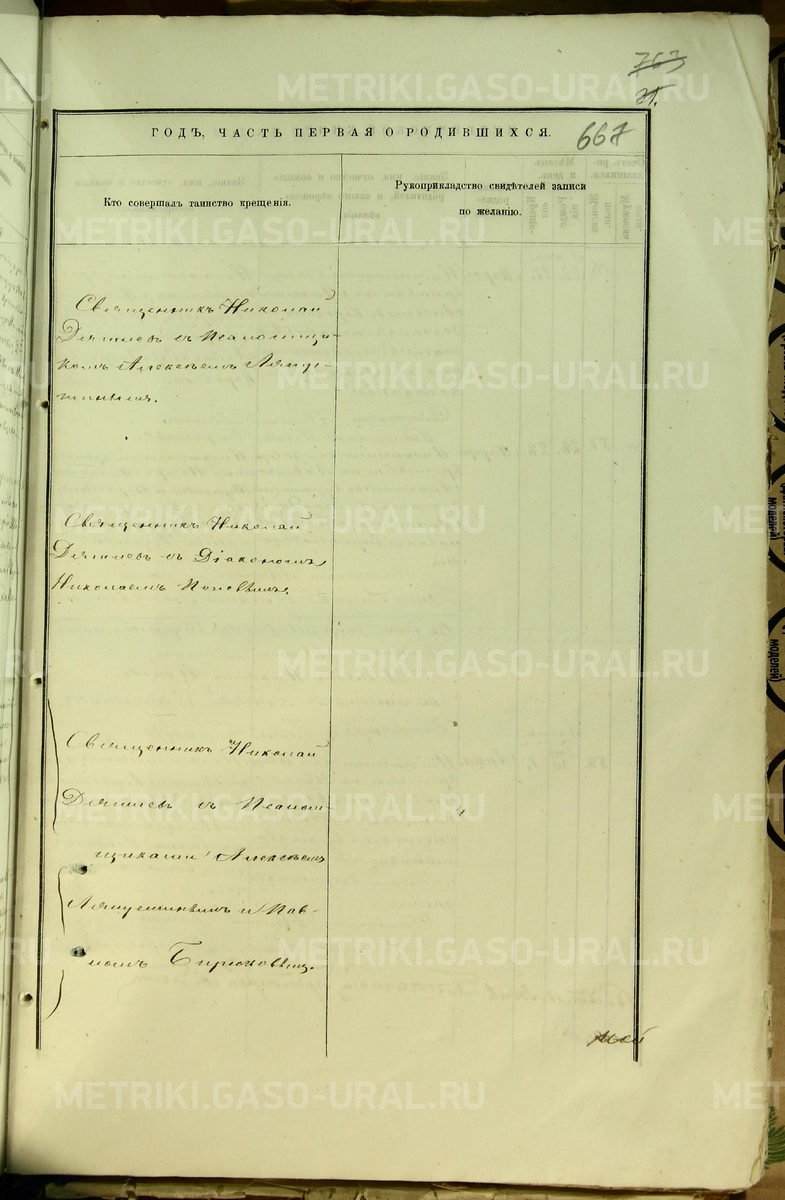 763
71.
ГОДЪ, ЧАСТЬ ПЕРВАЯ О РОДИВШИХСЯ.
667
Кто совершалъ таинство крещенія.
Рукоприкладство свидѣтелей записи
по желанію.
Священникъ Николай
съ Псаломщи-
комъ Алексѣемъ Ляпус-
тинымъ.
Священникъ Николай
съ Діакономъ
Николаемъ Поповымъ.
Священникъ Николай
съ Псалом-
щиками Алексѣемъ
Ляпустинымъ и Пав-
ломъ Бирюковымъ.
METRIKI.GASO-URAL.RU